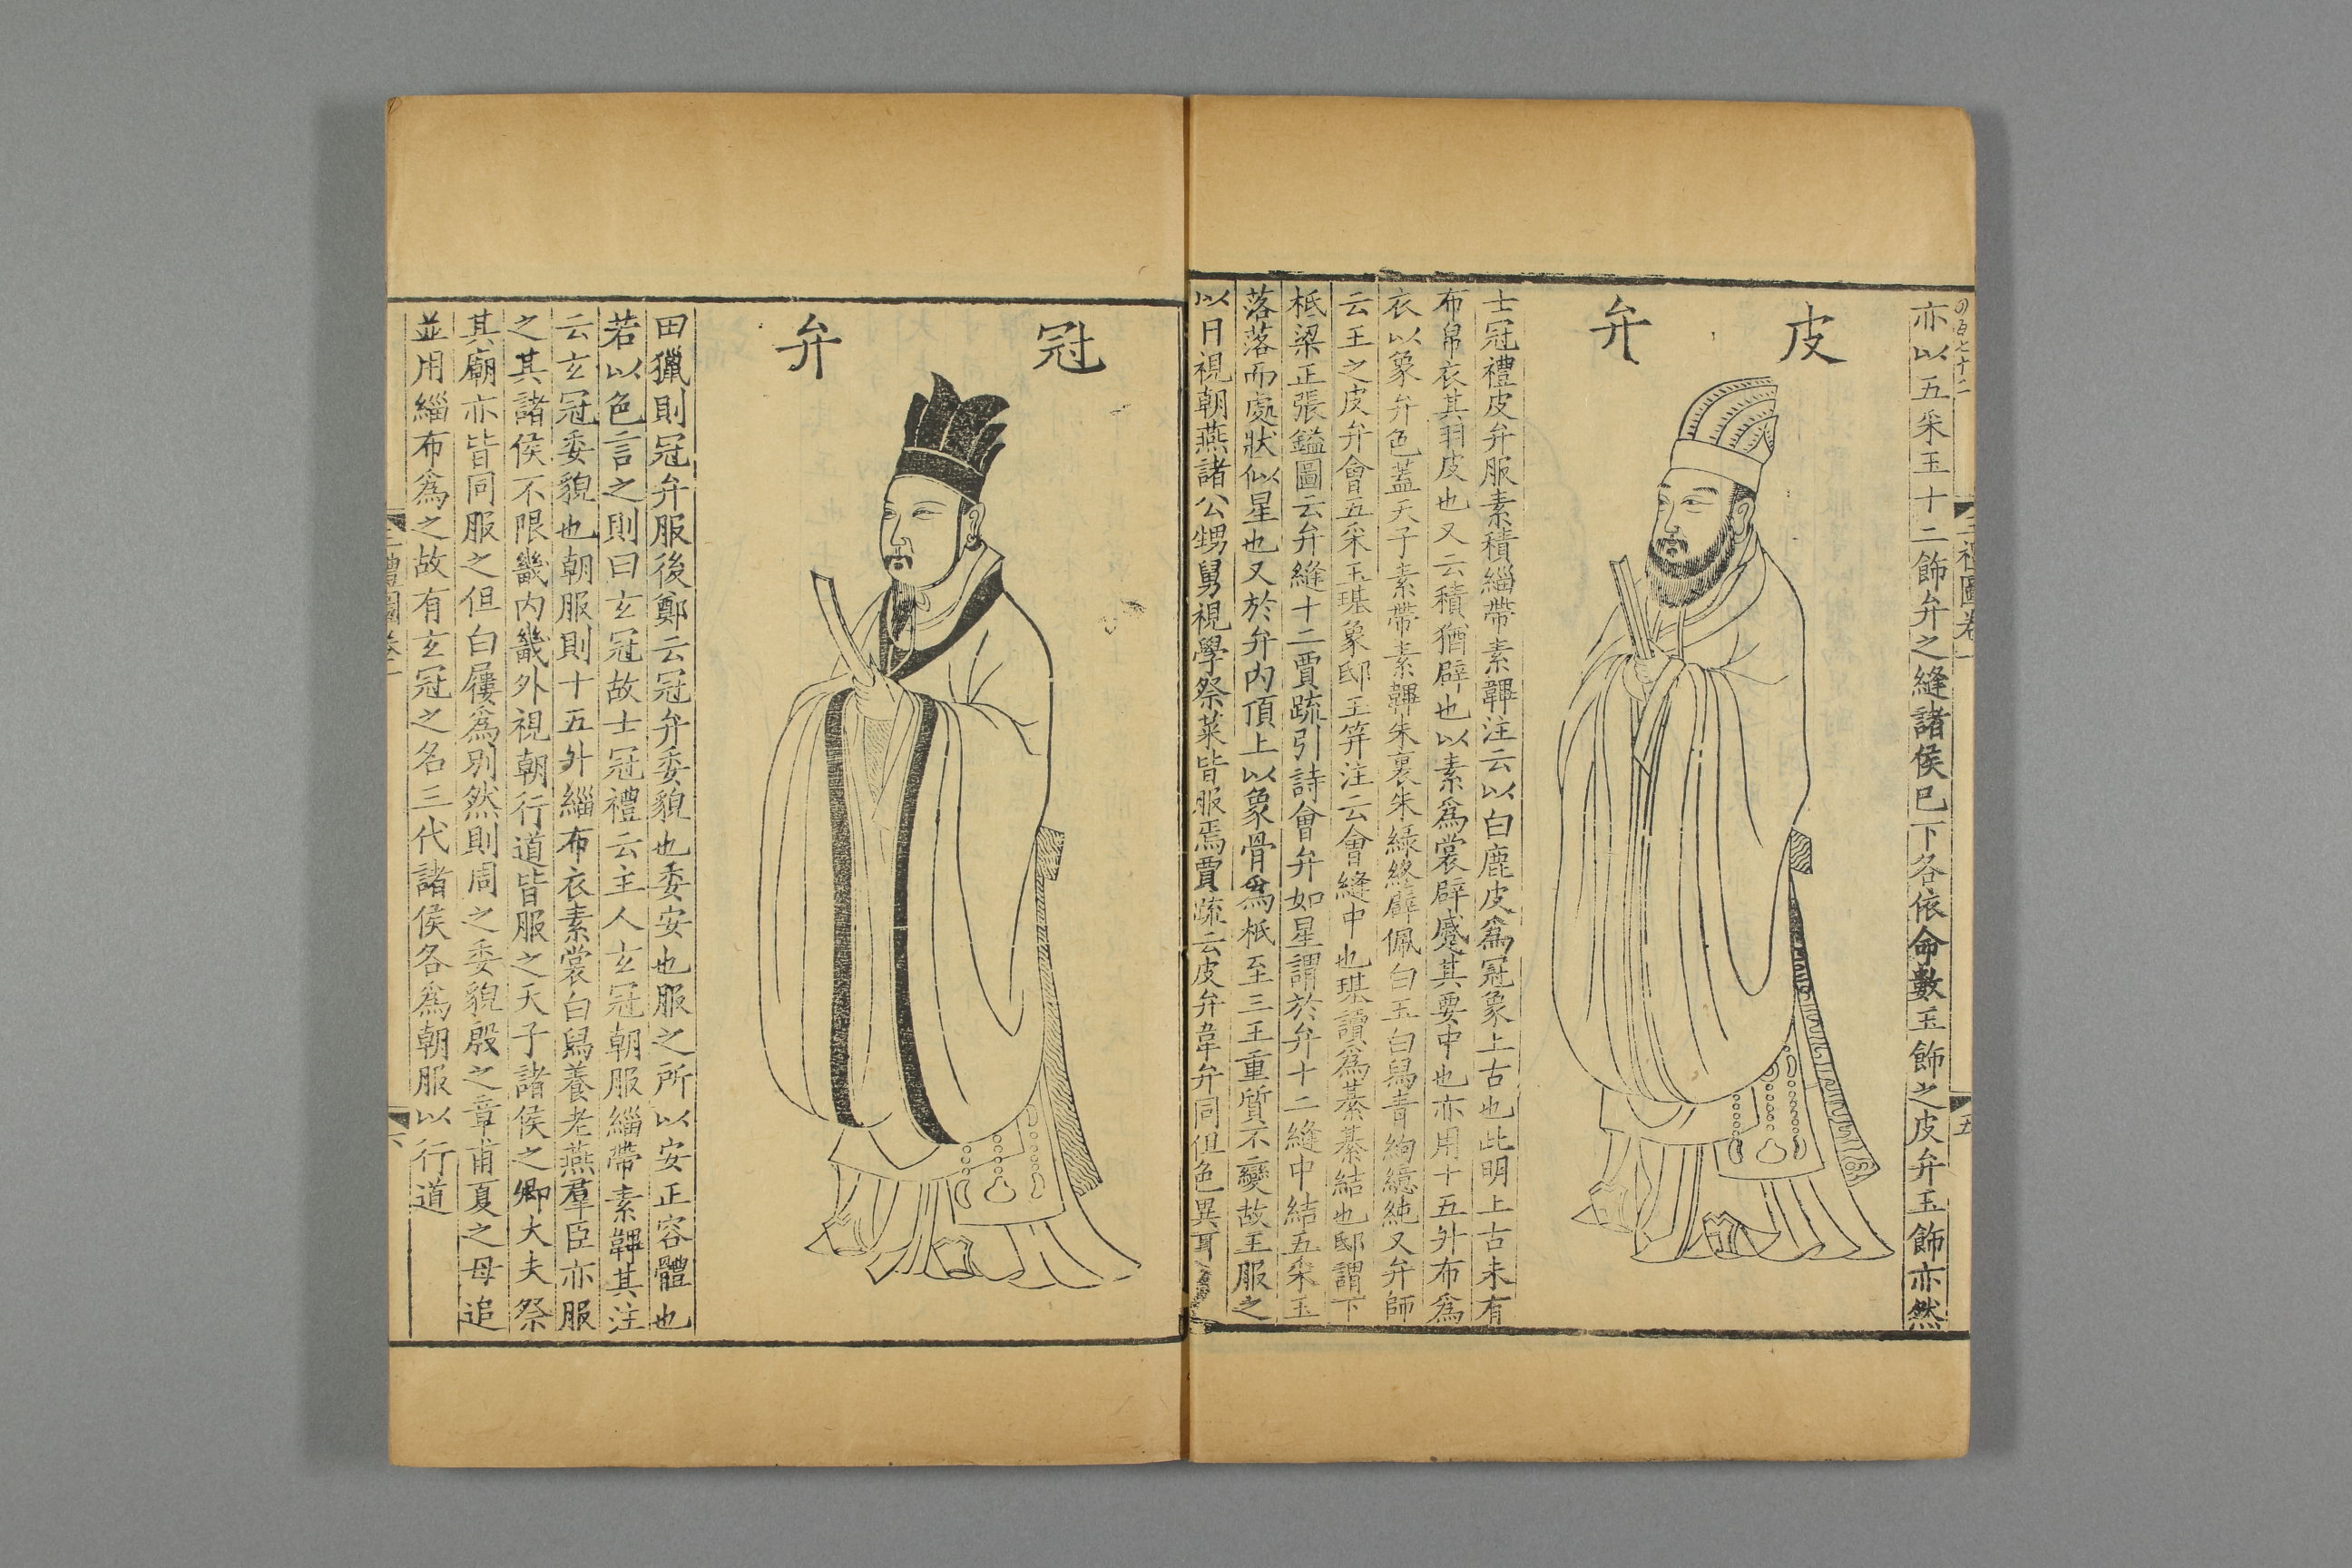 亦以五采玉十二飾弁之縫諸侯巳下各依命數玉飾之皮弁玉飾亦然
皮弁
士冠禮皮弁服素積緇帶素韠注云以白鹿皮爲冠象上古也此明上古未有
布帛衣其羽皮也又云積猶辟也以素爲裳辟蹙其要中也亦用十五升布爲
衣以象弁色蓋天子素帶素韠朱裏朱綠終辟佩白玉白舄青絇繶純又弁師
云王之皮弁會五采玉璂象邸玉笄注云會縫中也璂讀爲綦綦結也邸謂下
柢梁正張鎰圖云弁縫十二賈疏引詩會弁如星謂於弁十二縫中結五采玉
落落而處狀似星也又於弁內頂上以象骨爲柢至三王重質不變故王服之
以日視朝燕諸公甥舅視學祭菜皆服焉賈疏云皮弁韋弁同但色異耳
冠弁
田獵則冠弁服後鄭云冠弁委貌也委安也服之所以安正容體也
若以色言之則曰玄冠故士冠禮云主人玄冠朝服緇帶素韠其注
云玄冠委貌也朝服則十五升緇布衣素裳白舄養老燕羣臣亦服
之其諸侯不限畿內畿外視朝行道皆服之天子諸侯之卿大夫祭
其廟亦皆同服之但白屨爲別然則周之委貌殷之章甫夏之母追
並用緇布爲之故有玄冠之名三代諸侯各爲朝服以行道